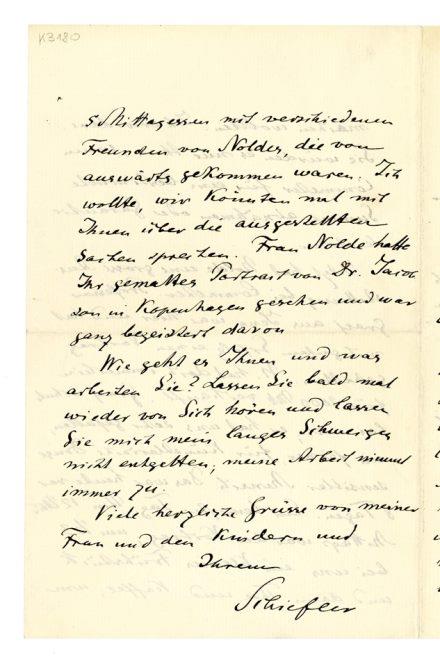 K3180
s Mittagessen mit verschiedenen
Freunden von Noldes, die von
auswärts gekommen waren. Ich
wollte, wir könnten mal mit
Ihnen über die ausgestellten
Sachen sprechen. Frau Nolde hatte
Ihr gemaltes Portrait von Dr. Jacob
son in Kopenhagen gesehen und war
ganz begeistert davon
Wie geht es Ihnen und was
arbeiten Sie? Lassen Sie bald mal
wieder von Sich hören und lassen
Sie mich mein langes Schweigen
nicht entgelten; meine Arbeit nimmt
immer zu.
Viele herzliche Grüsse von meiner
Frau und den Kindern und
Ihrem
Schiefler